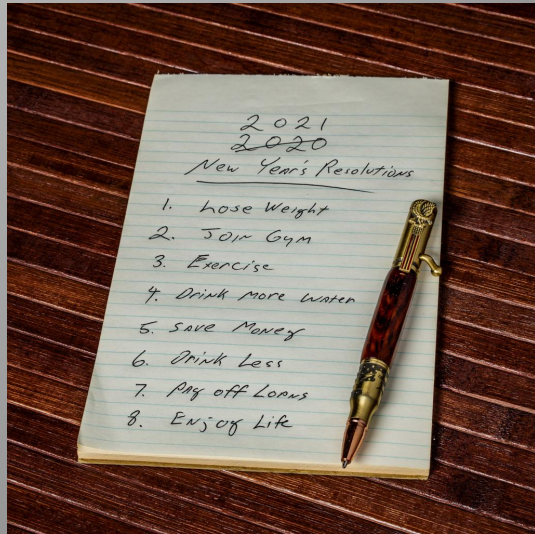 2021
2020
New Year's Resolutions
1. Lose Weight
2. Join Gym
3. Exercise
4. Drink More Water
5. Save Money
6. Drink Less
7. Pay off Loans
8. Enjoy Life